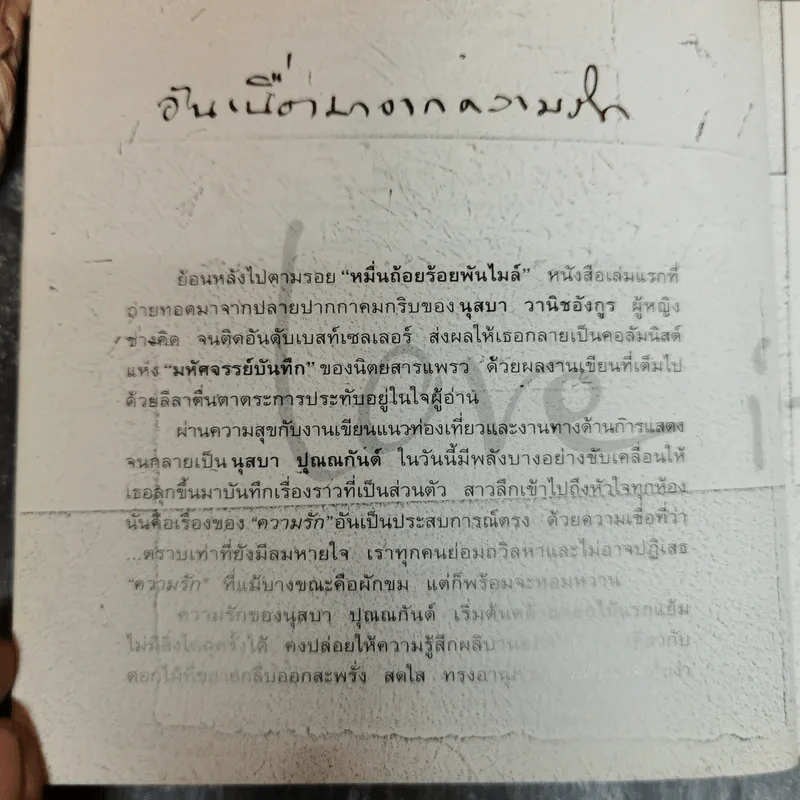 อันเนื่องมาจากความรัก
ย้อนหลังไปตามรอย “หมื่นถ้อยร้อยพันไมล์” หนังสือเล่มแรกที่
ถ่ายทอดมาจากปลายปากกาคมกริบของ นุสบา วานิชอังกูร ผู้หญิง
ช่างคิด จนติดอันดับเบสท์เซลเลอร์ ส่งผลให้เธอกลายเป็นคอลัมนิสต์
แห่ง “มหัศจรรย์บันทึก” ของนิตยสารแพรว ด้วยผลงานเขียนที่เต็มไป
ด้วยลีลาตื่นตาตระการประทับอยู่ในใจผู้อ่าน
ผ่านความสุขกับงานเขียนแนวท่องเที่ยวและงานทางด้านการแสดง
จนกลายเป็น นุสบา ปุณณกันต์ ในวันนี้มีพลังบางอย่างขับเคลื่อนให้
เธอลุกขึ้นมาบันทึกเรื่องราวที่เป็นส่วนตัว สาวลึกเข้าไปถึงหัวใจทุกห้อง
นั่นคือเรื่องของ “ความรัก” อันเป็นประสบการณ์ตรง ด้วยความเชื่อที่ว่า
...ตราบเท่าที่ยังมีลมหายใจ เราทุกคนย่อมถวิลหาและไม่อาจปฏิเสธ
“ความรัก” ที่แม้บางขณะคือผักขม แต่ก็พร้อมจะหอมหวาน
ความรักของนุสบา ปุณณกันต์ เริ่มต้น แรกแย้ม
ไม่มีสิ่งใด ได้ คงปล่อยให้ความรู้สึก กับ
ดอกไม้ที่ กลีบออกสะพรั่ง สดใส
love